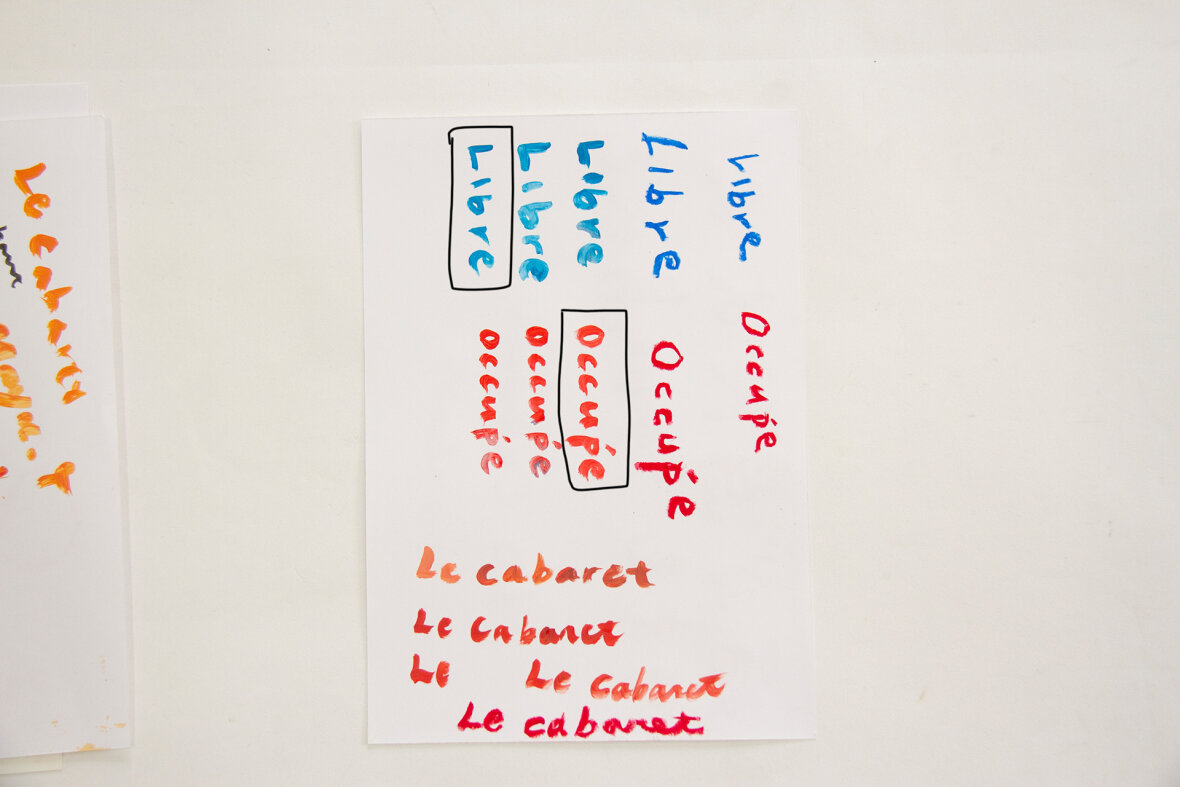 Libre
Libre
Libre
Libre
Libre
Occupé
Occupé
Occupé
Occupé
Occupé
Le cabaret
Le Cabaret
Le Le Cabaret
Le cabaret
Le Cabaret